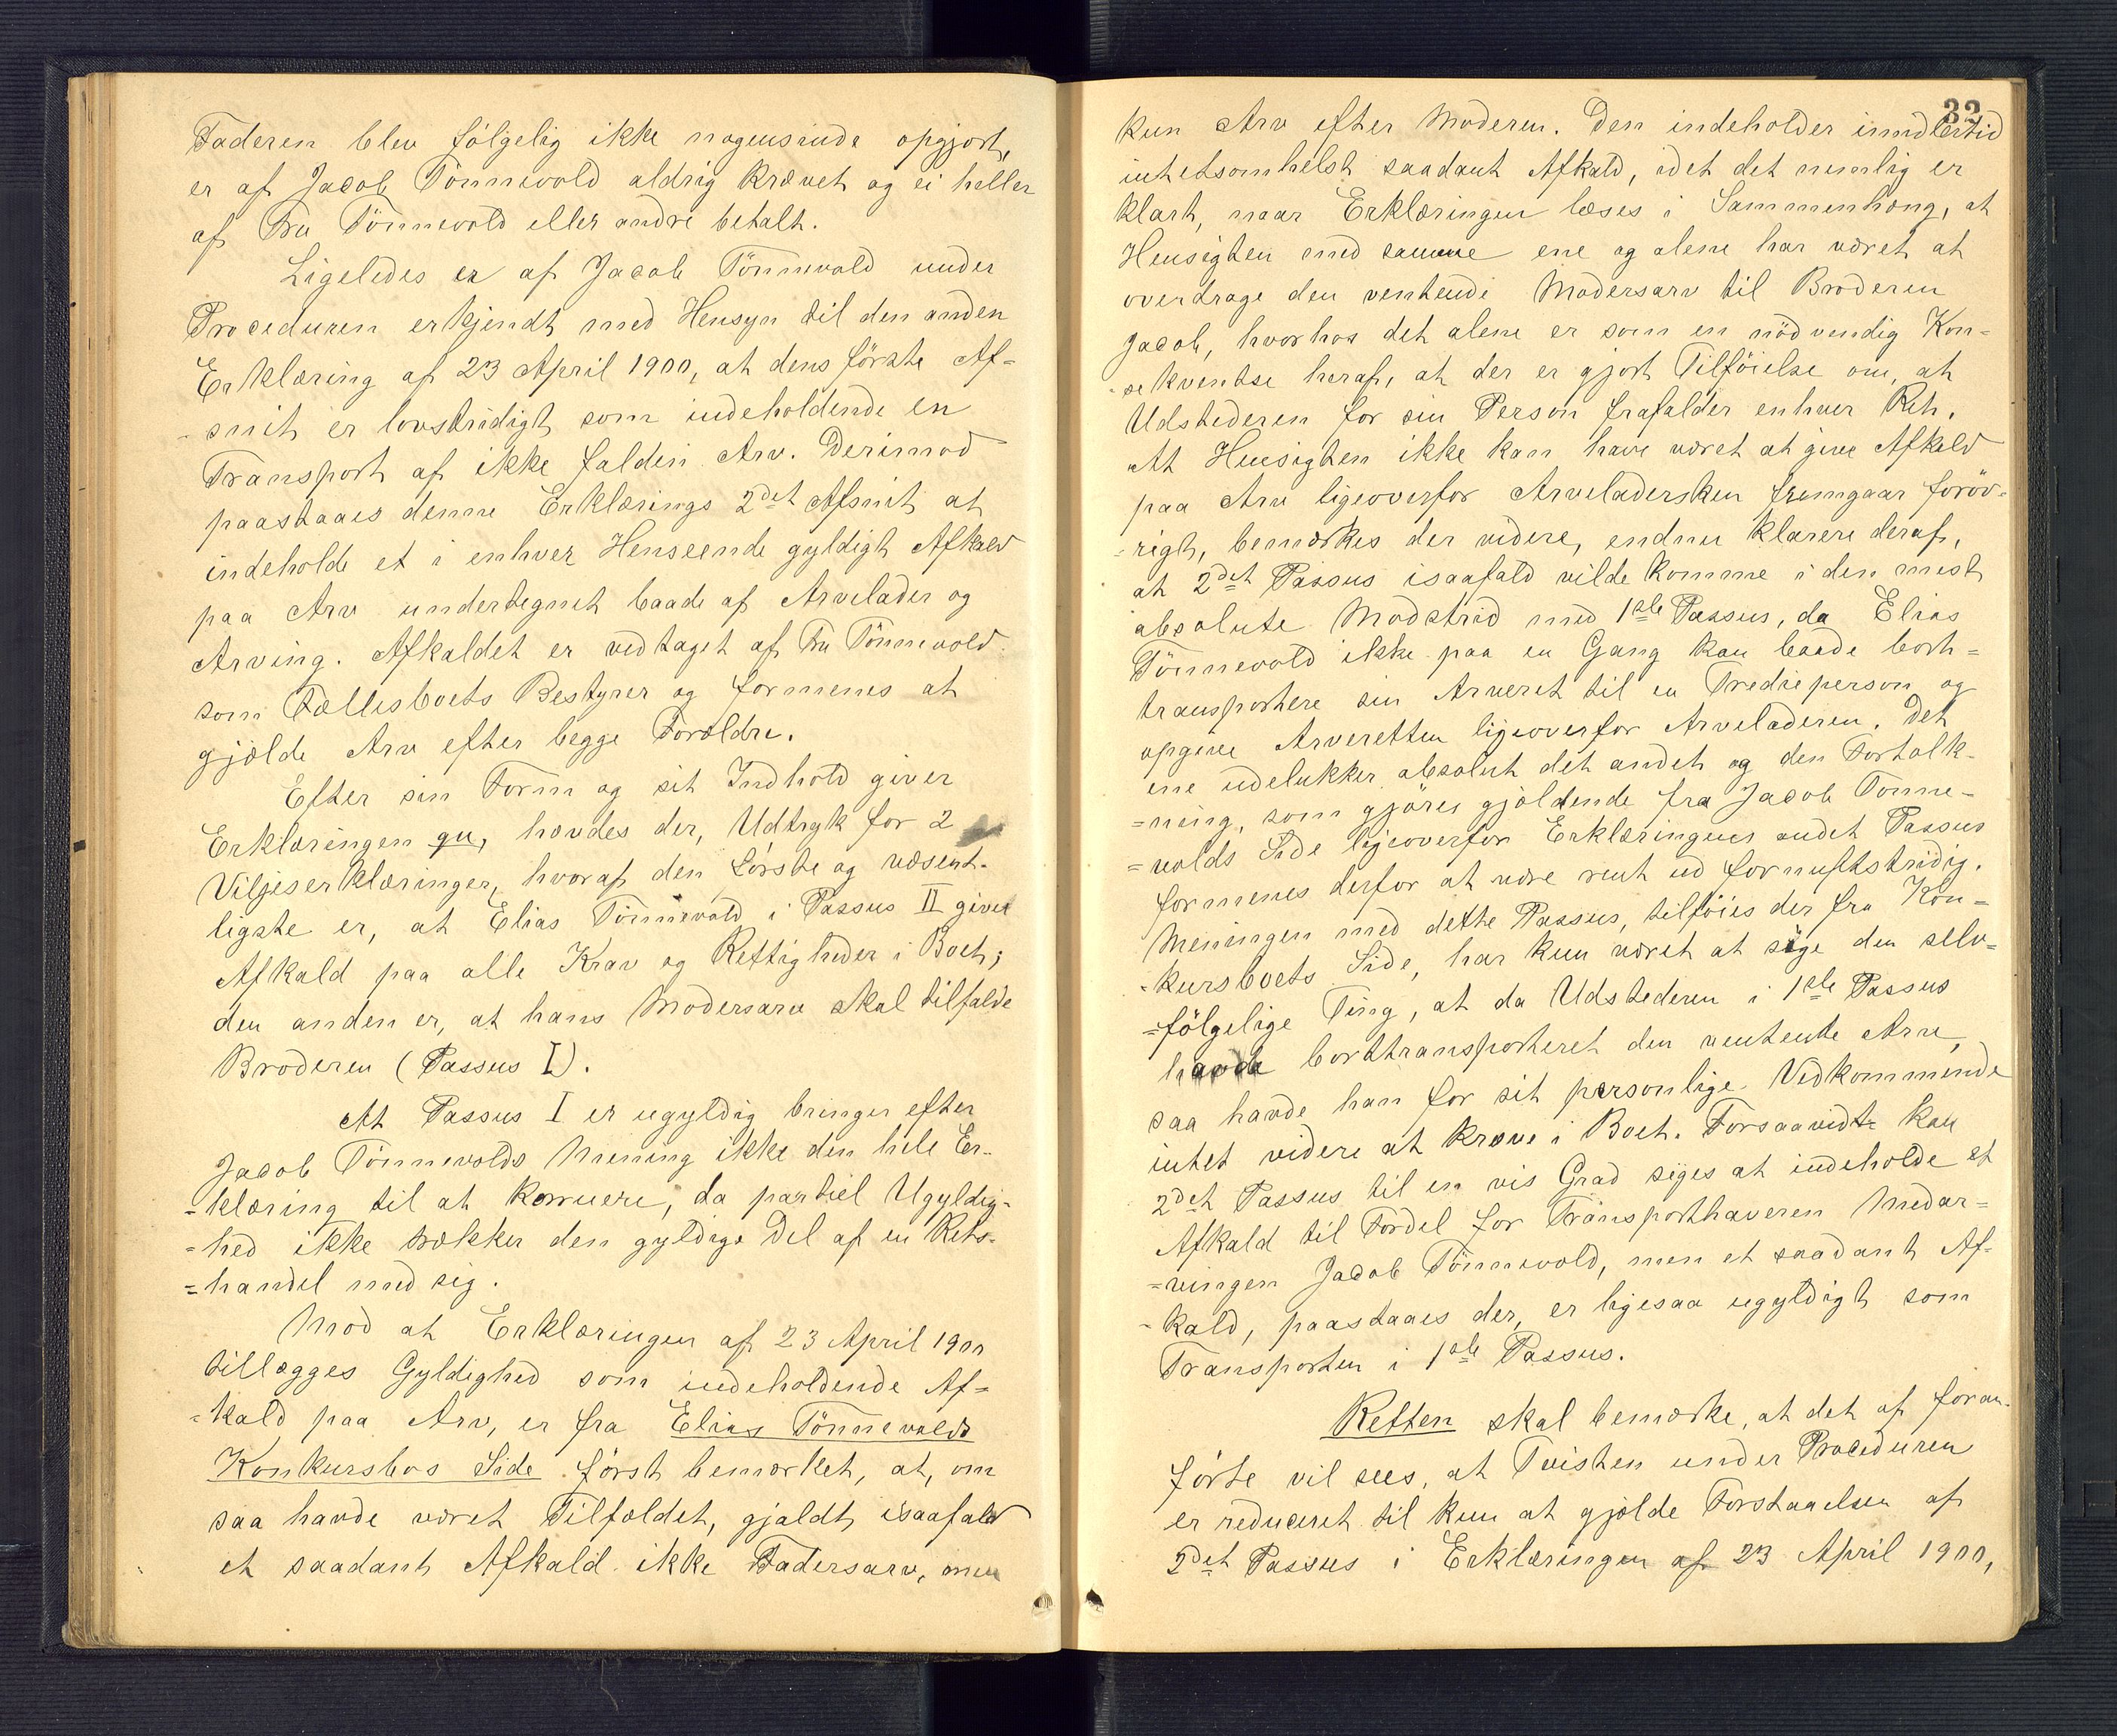 Faderen blev følgelig ikke nogensinde opgjort,
er af Jacob Tönnevold aldrig krævet og ei heller
af Fru Tönnevold eller andre betalt.
Ligeledes er af Jacob Tönnevold under
Proceduren erkjendt med Hensyn til den anden
Erklæring af 23 April 1900, at dens første Af=
-snit er lovstridigt som indeholdende en
Transport af ikke falden Arv. Derimod
paastaaes denne Erklærings 2det Afsnit at
indeholde et i enhver Henseende gyldigt Afkald
paa Arv undertegnet baade af Arvelader og
Arving. Afkaldet er vedtaget af Fru Tönnevold
som Fællesboets Bestyrer og formenes at
gjælde Arv efter begge Forældre.
Efter sin Form og sit Indhold giver
Erklæringen qu, hævdes der, Udtryk for 2
Viljeserklæringer, hvoraf den første og væsent-
ligste er, at Elias Tönnevold i Passus II giver
Afkald paa alle Krav og Rettigheder i Boet;
den anden er, at hans Modersarv skal tilfalde
Broderen (Passus I).
At Passus I er ugyldig bringer efter
Jacob Tönnevolds Mening ikke den hele Er-
-klæring til at korruere, da partiel Ugyldig-
=hed ikke trækker den gyldige Del af en Rets-
=handel med sig.
Mod at Erklæringen af 23 April 1900
tillægges Gyldighed som indeholdende Af=
=kald paa Arv, er fra Elias Tönnevolds
Konkursbos Side først bemærket, at, om
saa havde været Tilfældet, gjaldt isaafald
et saadant Afkald ikke Fadersarv, men
32
kun Arv efter Moderen. Den indeholder imidlertid
intetsomhelst saadant Afkald, idet det nemlig er
klart, naar Erklæringen læses i Sammenhæng, at
Hensigten med samme ene og alene har været at
overdrage den ventende Modersarv til Broderen
Jacob, hvorhos det alene er som en nödvendig Kon=
-sekventse heraf, at der er gjort Tilföielse om, at
Udstederen for sin Person frafalder enhver Ret.
At Hensigten ikke kan have været at give Afkald
paa Arv ligeoverfor Arveladersken fremgaar foröv-
-rigt, bemærkes der videre, endnu klarere deraf,
at 2det Passus isaafald vilde komme i den mest
absolute Modstrid med 1ste Passus, da Elias
Tönnevold ikke paa en Gang kan baade bort=
transportere sin Arveret til en Trediepers​on og
opgive Arveretten ligeoverfor Arveladeren. Det
ene udelukker absolut det andet og den Fortolk-
=ning, som gjöres gjældende fra Jacob Tönne-
=volds Side ligeoverfor Erklæringens andet Passus
formenes derfor at være rent ud fornuftstridig.
Meningen med dette Passus, tilföies der fra Kon=
-kursboets Side, har kun været at sige den selv=
=fölgelige Ting, at da Udstederen i 1ste Passus
havde borttransporteret den ventende Arv,
saa havde han for sit personlige Vedkommende
intet videre at kræve i Boet. Forsaavidt kan
2det Passus til en vis Grad siges at indeholde et
Afkald til Fordel for Transporthaveren Medar=
-vingen Jacob Tönnevold, men et saadant Af-
-kald, paastaaes der, er ligesaa ugyldigt som
Transporten i 1ste Passus.
Retten skal bemærke, at det af foran-
förte vil sees, at Tvisten under Proceduren
er reduceret til kun at gjælde Forstaaelsen af
2det Passus i Erklæringen af 23 April 1900,